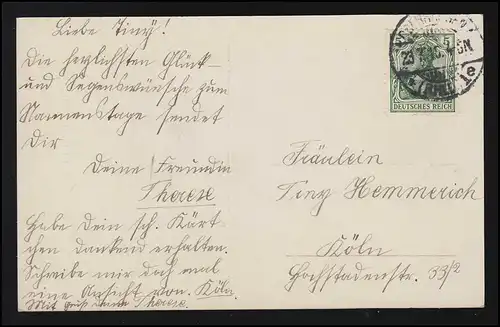 Liebe Tiny!
Die herzlichsten Glück-
und Segenswünsche zum
Namenstage sendet
Dir
Deine Freundin
Therese
Habe Dein sch. Kärt-
chen dankend erhalten.
Schreibe mir doch mal
eine Ansicht von Köln.
Mit Gruß deine Therese.
5
DEUTSCHES REICH
1e
Fräulein
Tiny Hemmerich
Köln
Hochstadenstr. 33/2